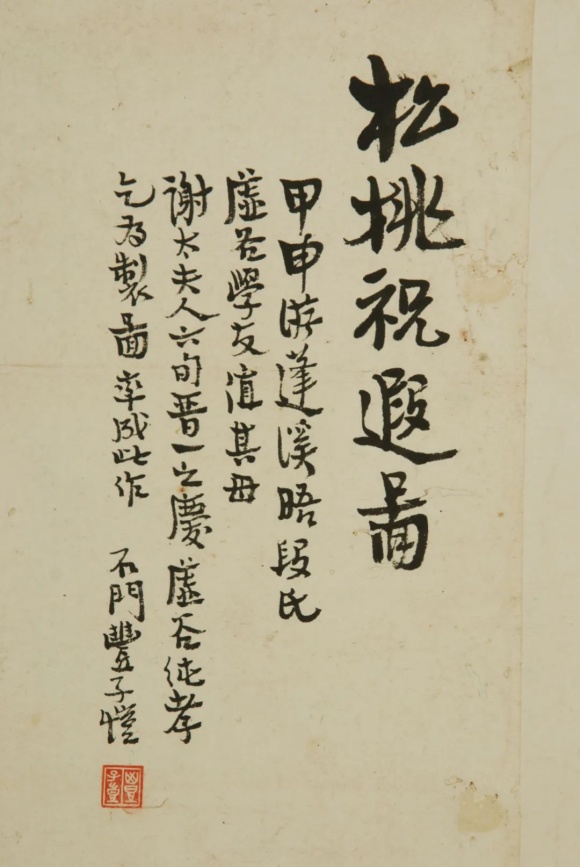 松桃祝遐圖
甲申游蓬溪晤段氏
虛谷學友值其母
謝太夫人六旬晋一之慶虛谷純孝
乞為製圖率成此作 石門豐子愷